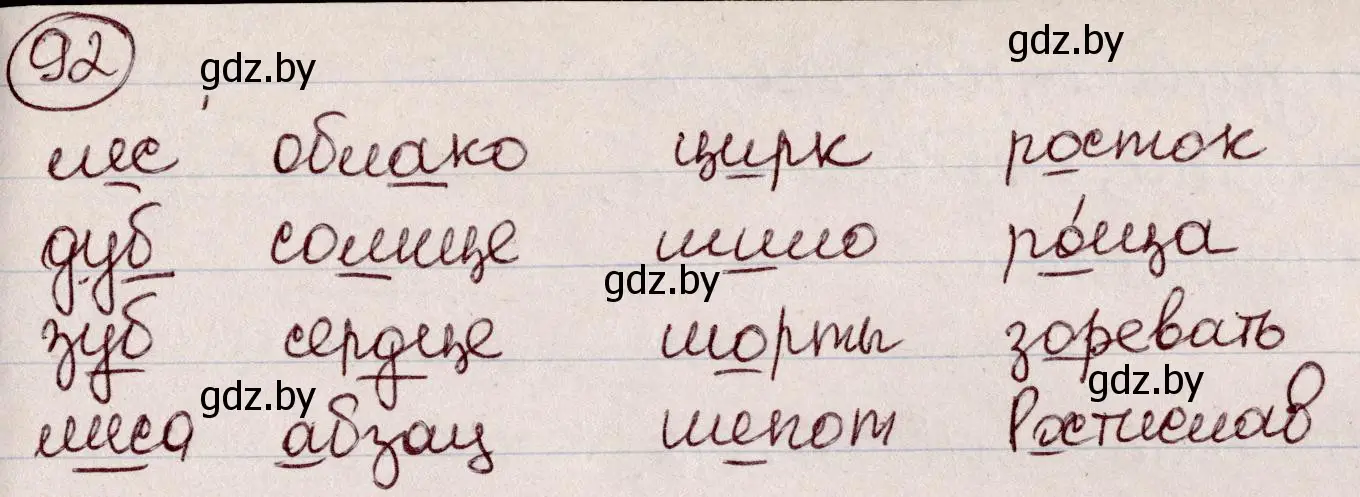 92
gdz.by
gdz.by
лес облако цирк росток
дуб солнце шило ро́ща
gdz.by
зуб сердце шорты зоревать
gdz.by
gdz.by
лиса абзац шепот Ростислав